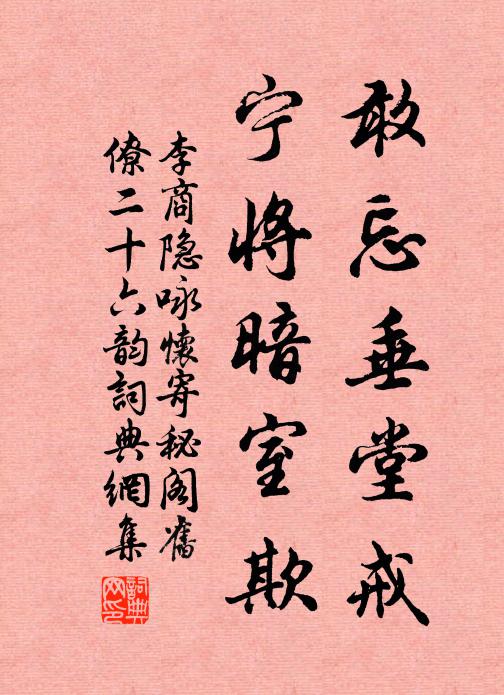 敢忘垂堂戒
宁将暗室欺
李商隐咏懷寄秘阁舊
僚二十六韵詞典網集
詞典
网印